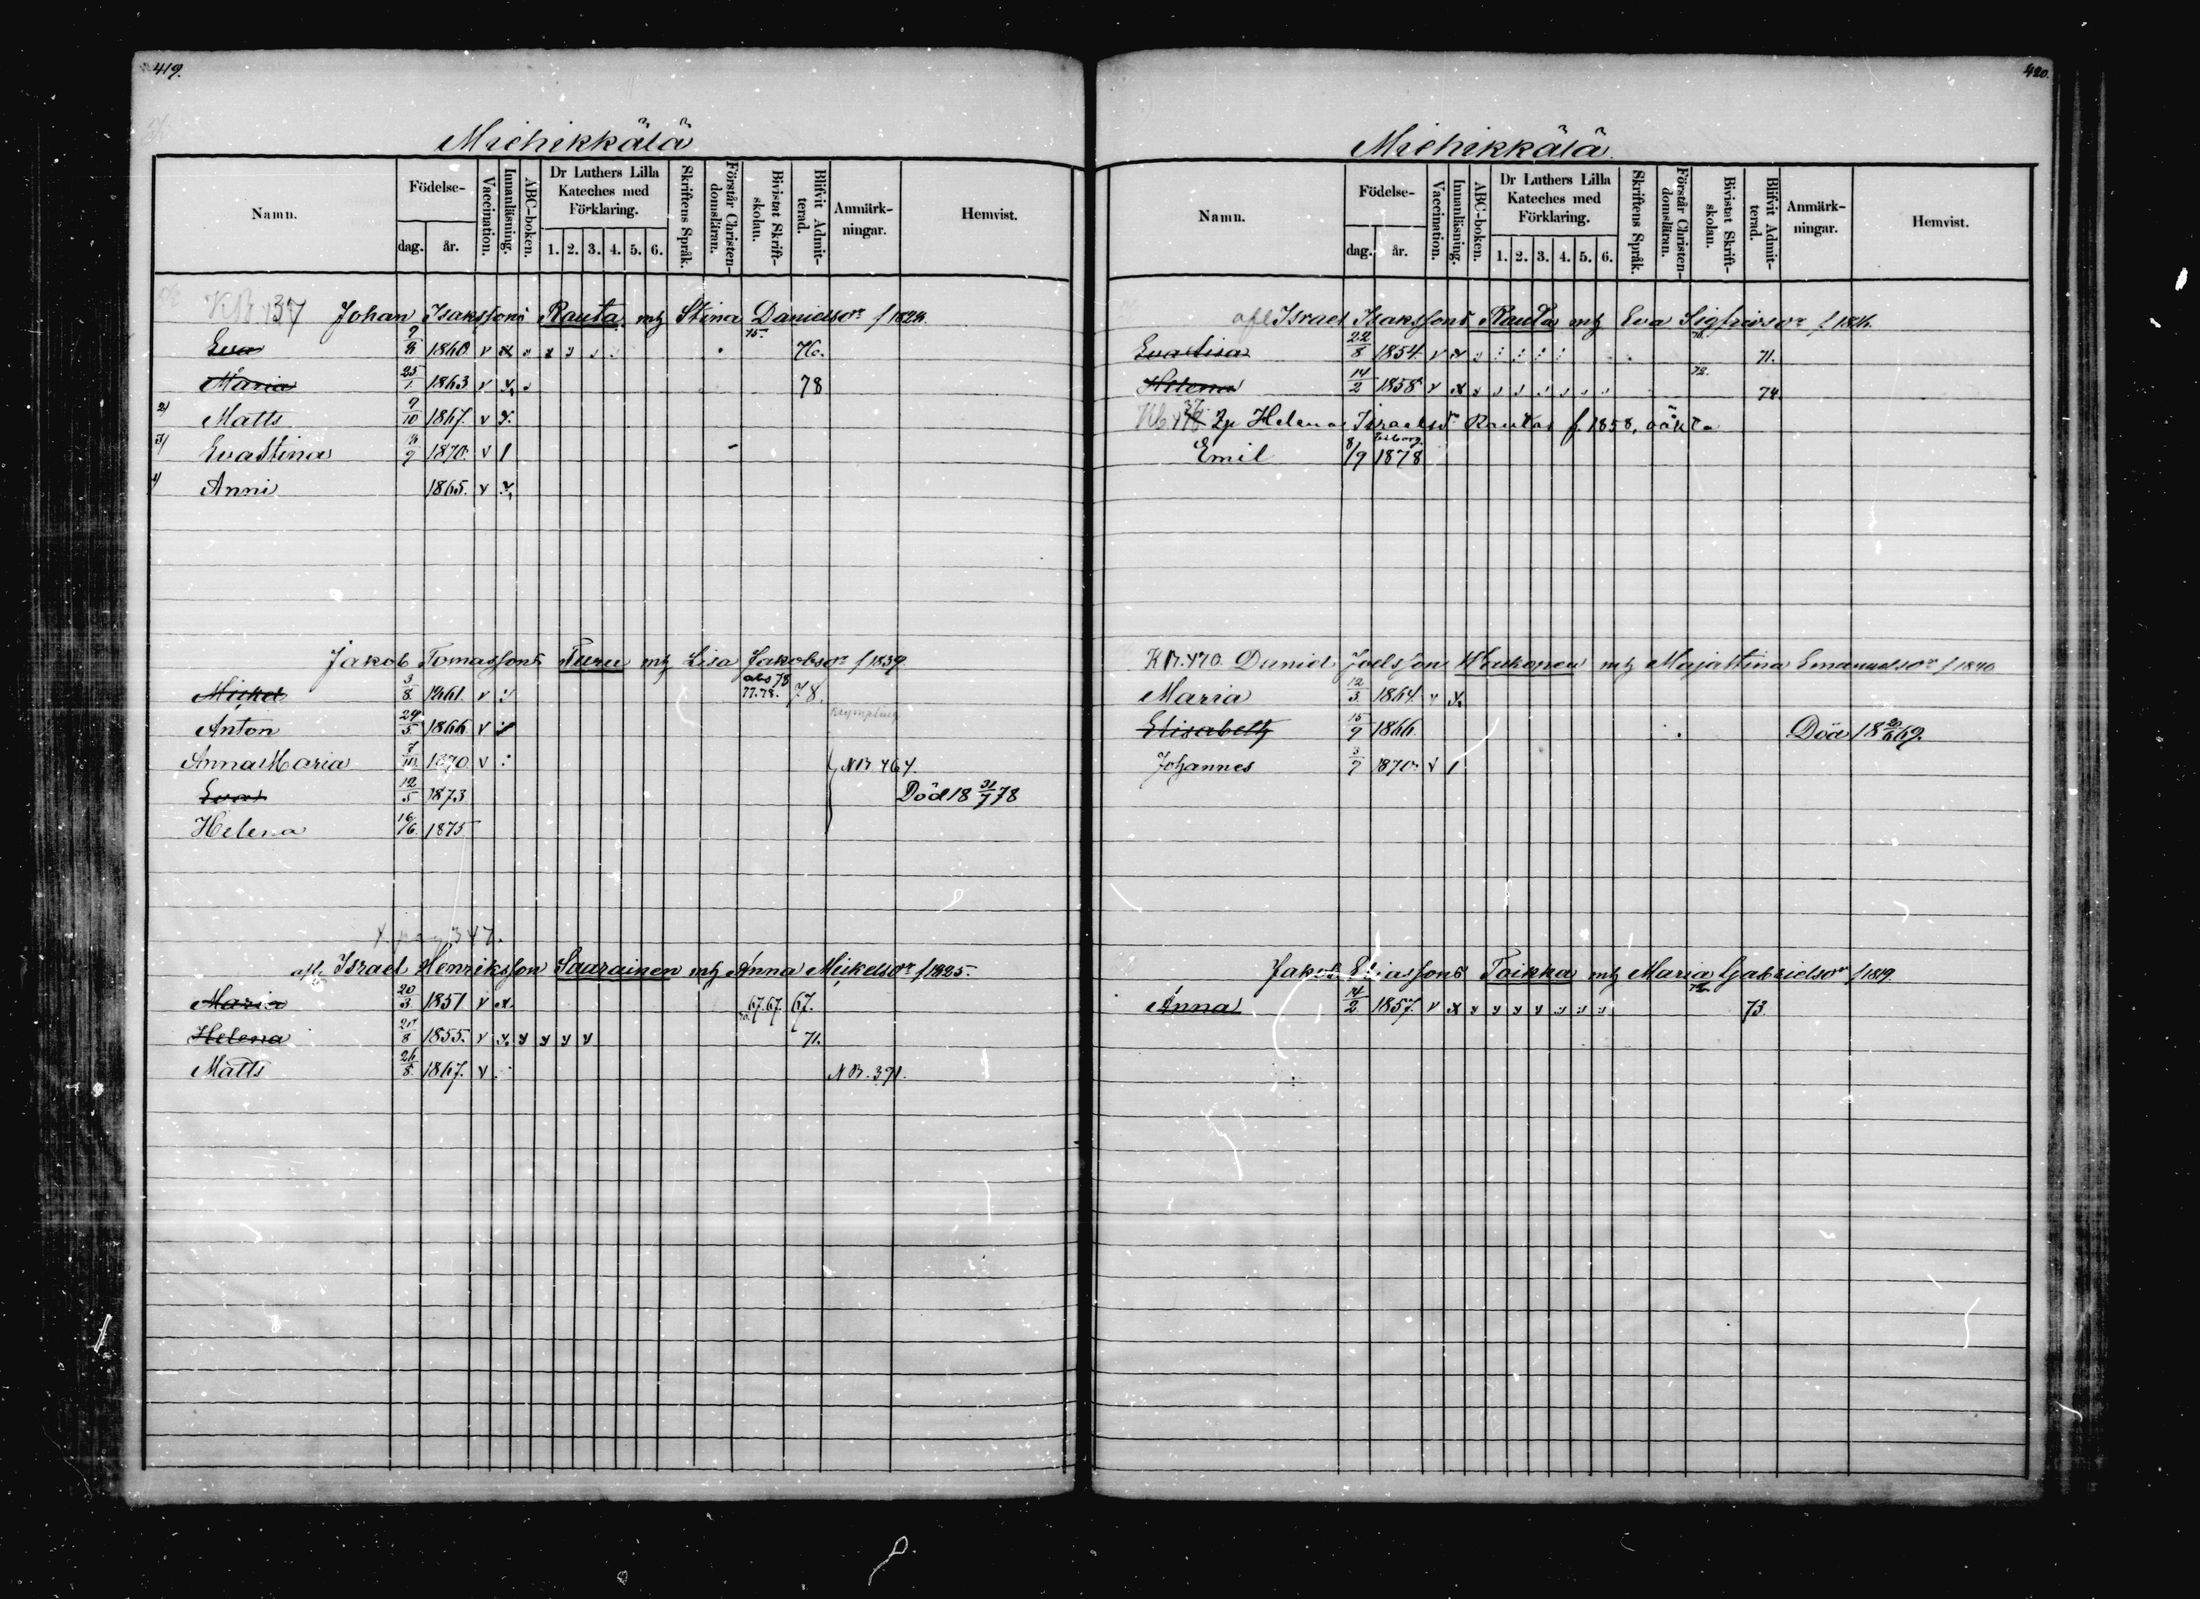 419.
Miehikkälä
Namn.
Födelse-
dag.
år.
Vaccination.
Innanläsning.
ABC-boken.
Dr Luthers Lilla Kateches med Förklaring.
1. 2. 3. 4. 5. 6.
Skriftens Språk.
Förstår Christen-domsläran.
Bivistat Skrift-skolan.
Blifvit Admit-terad.
Anmärk-ningar.
Hemvist.
137 Johan Isakssons Rauta mh Stina Danielsdr
Eva 1860 v x 75. 76.
Maria 25/1 1863 v x 78
2) Matts 9/10 1867. v x
3) Eva Stina 1870. v 1
1) Anni 1865. v x
Jakob Tomassons Turu mh Lisa Jakobsdr f 1839.
Mickel 3/8 1861. v abs 78 77.78. 78.
Anton 29/5 1866 v
Anna Maria 7/10 1870 v NB 464.
Eva 12/5 1873 Död 18 31/7 78
Helena 16/6 1875
pag 347.
afl. Israel Henriksson Saurainen mh Anna Mickelsdr f 1825.
Maria 20/3 1851 v x 67.67. 67.
Helena 8 1855. v x v v v v 71.
Matts 26/8 1867. v NB. 371.
420.
Miehikkälä
Namn.
Födelse-
dag.
år.
Vaccination.
Innanläsning.
ABC-boken.
Dr Luthers Lilla Kateches med Förklaring.
1. 2. 3. 4. 5. 6.
Skriftens Språk.
Förstår Christen-domsläran.
Bivistat Skrift-skolan.
Blifvit Admit-terad.
Anmärk-ningar.
Hemvist.
afl Israel Isakssons Rauta mh Eva Sigfridsdr
Eva Lisa 22/8 1854. v x 71.
Helena 14/2 1858 v x 72. 74.
Helena Israelsdr Rauta f 1858, oäkta
Emil 8/9 1878
KB. 470. Daniel Joelsson Houkonen mh Maja Stina Emanuelsdr f 1840
Maria 12/3 1864. v x
Elisabeth 15/9 1866. Död 18 69.
Johannes 3/7 1870. v 1
Jakob Eliassons Toikka mh Maria Gabrielsdr f 1819.
Anna 14/2 1857. v x 73.